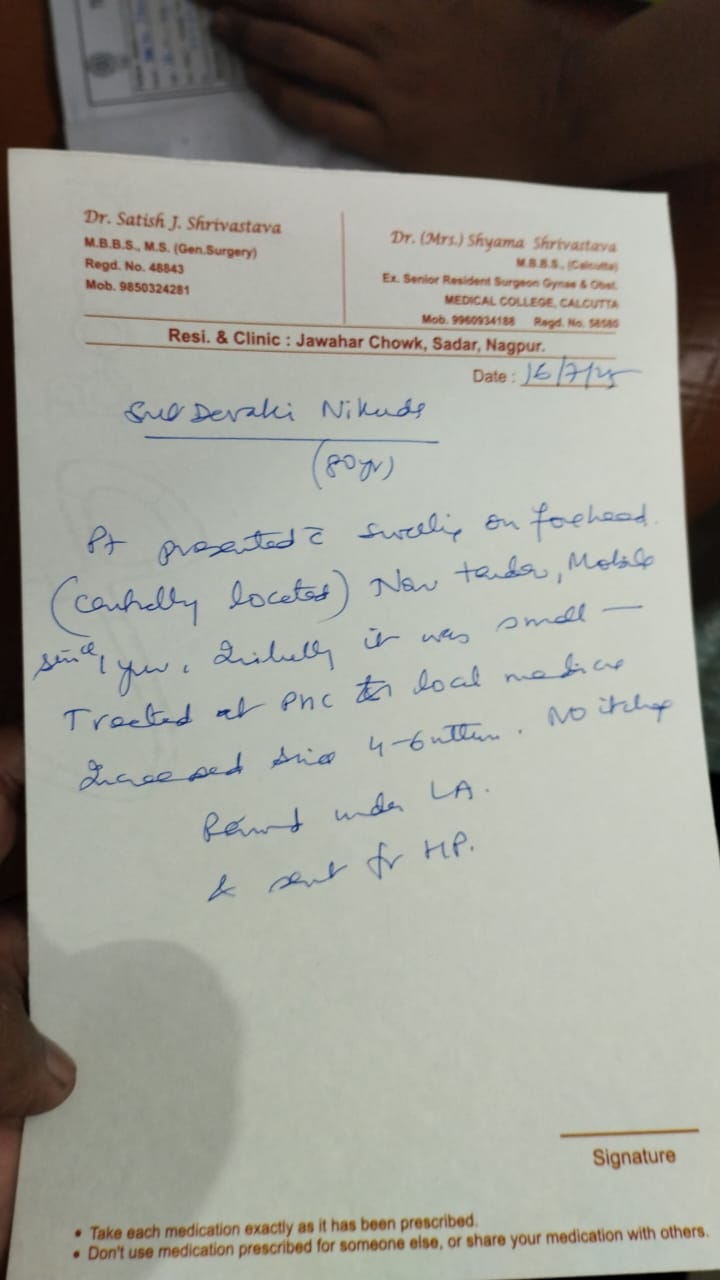 Dr. Satish J. Shrivastava
M.B.B.S., M.S. (Gen.Surgery)
Regd. No. 48843
Mob. 9850324281
Dr. (Mrs.) Shyama Shrivastava
M.B.B.S., (Calcutta)
Ex. Senior Resident Surgeon Gynae & Obst.
MEDICAL COLLEGE, CALCUTTA
Mob. 9960934188 Regd. No. 58580
Resi. & Clinic : Jawahar Chowk, Sadar, Nagpur.
Date : 16/7/25
Devaki Nikude
(80yr)
Pt presented c̄ swelling on forehead.
(centrally located) Non tender, Mobile
since 1 year. Initially it was small —
Treated at PHC local medicine
Increased since 4-6 . No itching
Removed under LA.
& sent for HP.
Signature
• Take each medication exactly as it has been prescribed.
• Don't use medication prescribed for someone else, or share your medication with others.